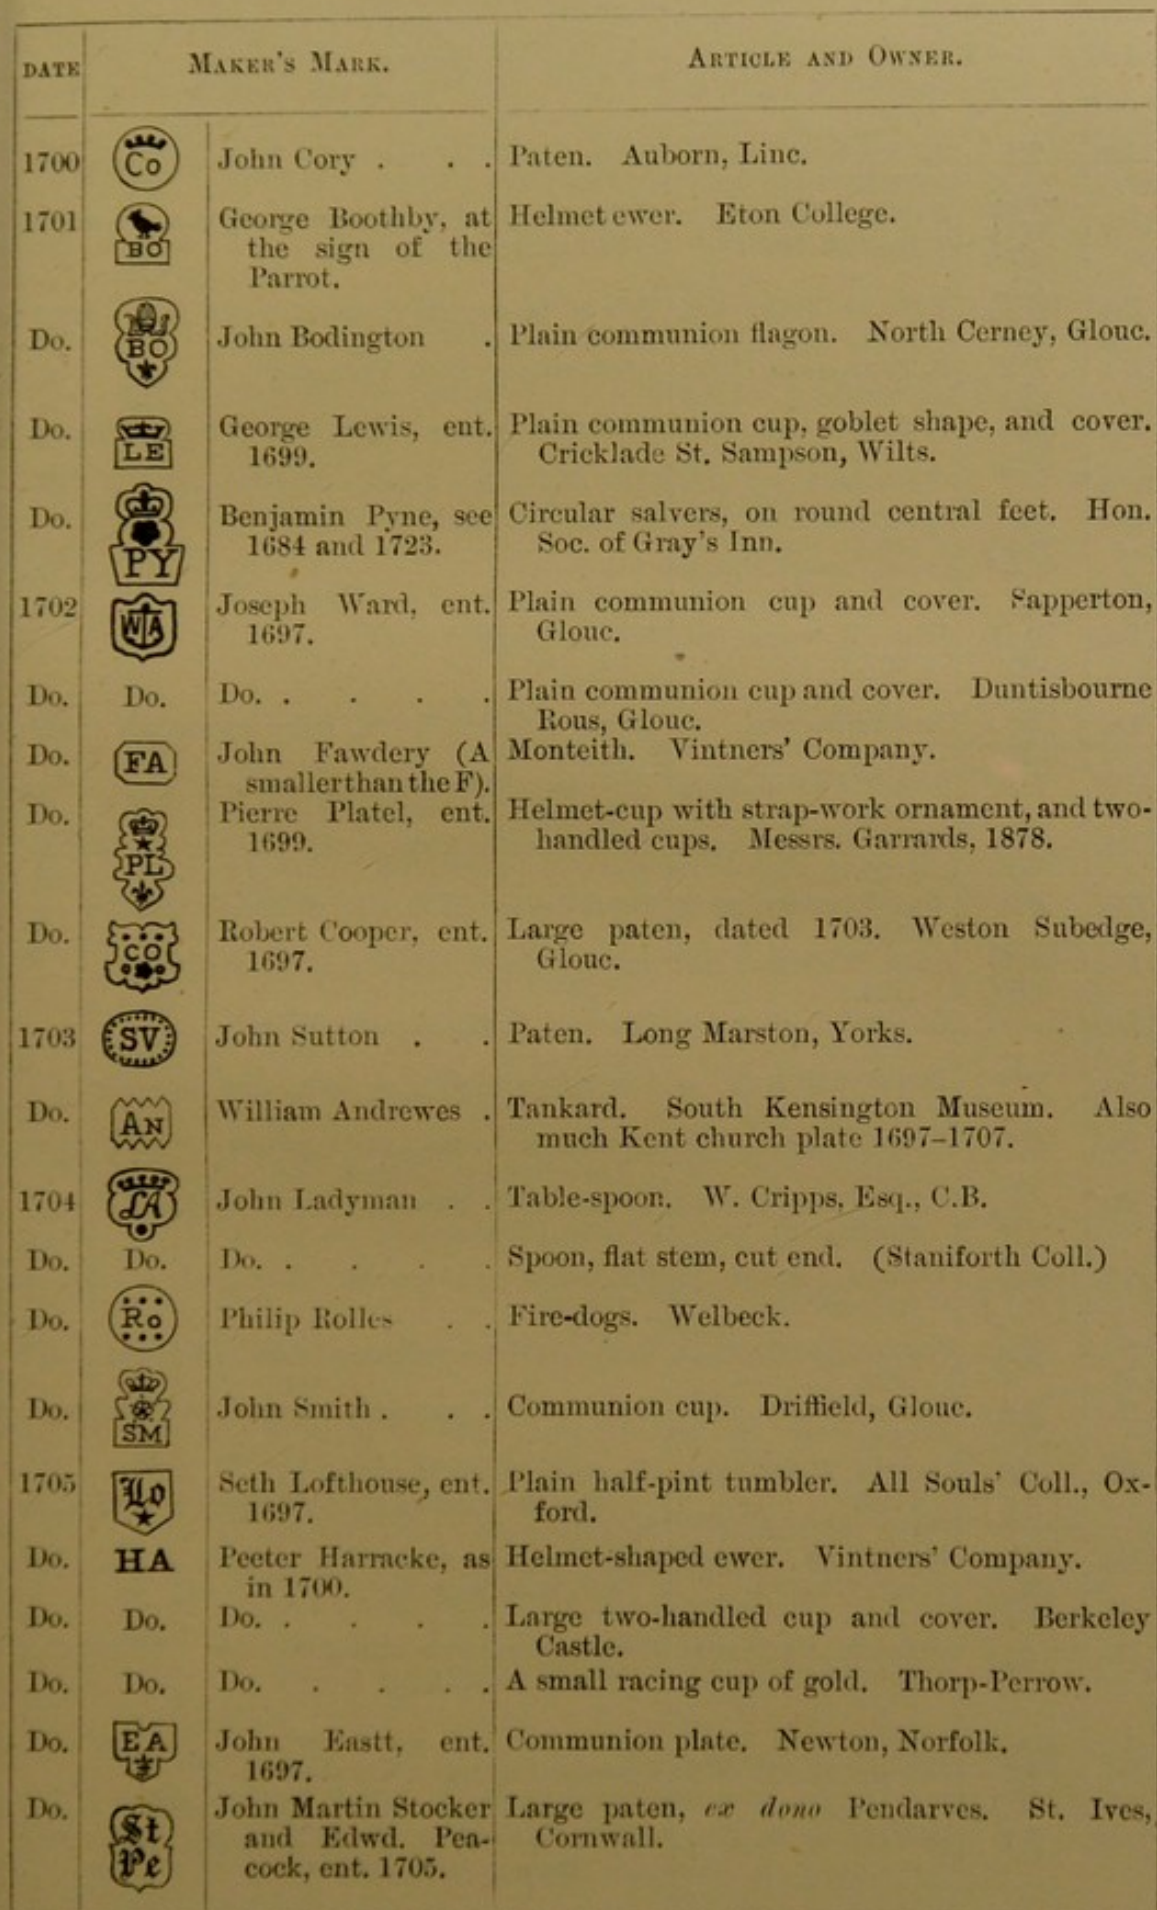 DATE MAKER'S MARK. ARTICLE AND OWNER.
1700 Co John Cory . . . Paten. Auborn, Linc.
1701 BO George Boothby, at Helmet ewer. Eton College.
the sign of the
Parrot.
Do. BO John Bodington . Plain communion flagon. North Cerney, Glouc.
Do. LE George Lewis, ent. Plain communion cup, goblet shape, and cover.
1699. Cricklade St. Sampson, Wilts.
Do. PY Benjamin Pyne, see Circular salvers, on round central feet. Hon.
1684 and 1723. Soc. of Gray's Inn.
1702 WA Joseph Ward, ent. Plain communion cup and cover. Sapperton,
1697. Glouc.
Do. Do. Do. . . . . Plain communion cup and cover. Duntisbourne
Rous, Glouc.
Do. FA John Fawdery (A Monteith. Vintners' Company.
smaller than the F).
Do. PL Pierre Platel, ent. Helmet-cup with strap-work ornament, and two-
1699. handled cups. Messrs. Garrards, 1878.
Do. CO Robert Cooper, ent. Large paten, dated 1703. Weston Subedge,
1697. Glouc.
1703 SV John Sutton . . Paten. Long Marston, Yorks.
Do. AN William Andrewes . Tankard. South Kensington Museum. Also
much Kent church plate 1697–1707.
1704 LA John Ladyman . . Table-spoon. W. Cripps, Esq., C.B.
Do. Do. Do. . . . . Spoon, flat stem, cut end. (Staniforth Coll.)
Do. Ro Philip Rolles . . Fire-dogs. Welbeck.
Do. SM John Smith . . . Communion cup. Driffield, Glouc.
1705 Lo Seth Lofthouse, ent. Plain half-pint tumbler. All Souls' Coll., Ox-
1697. ford.
Do. HA Peeter Harracke, as Helmet-shaped ewer. Vintners' Company.
in 1700.
Do. Do. Do. . . . . Large two-handled cup and cover. Berkeley
Castle.
Do. Do. Do. . . . . A small racing cup of gold. Thorp-Perrow.
Do. EA John Eastt, ent. Communion plate. Newton, Norfolk.
1697.
Do. St John Martin Stocker Large paten, ex dono Pendarves. St. Ives,
Pe and Edwd. Pea- Cornwall.
cock, ent. 1705.